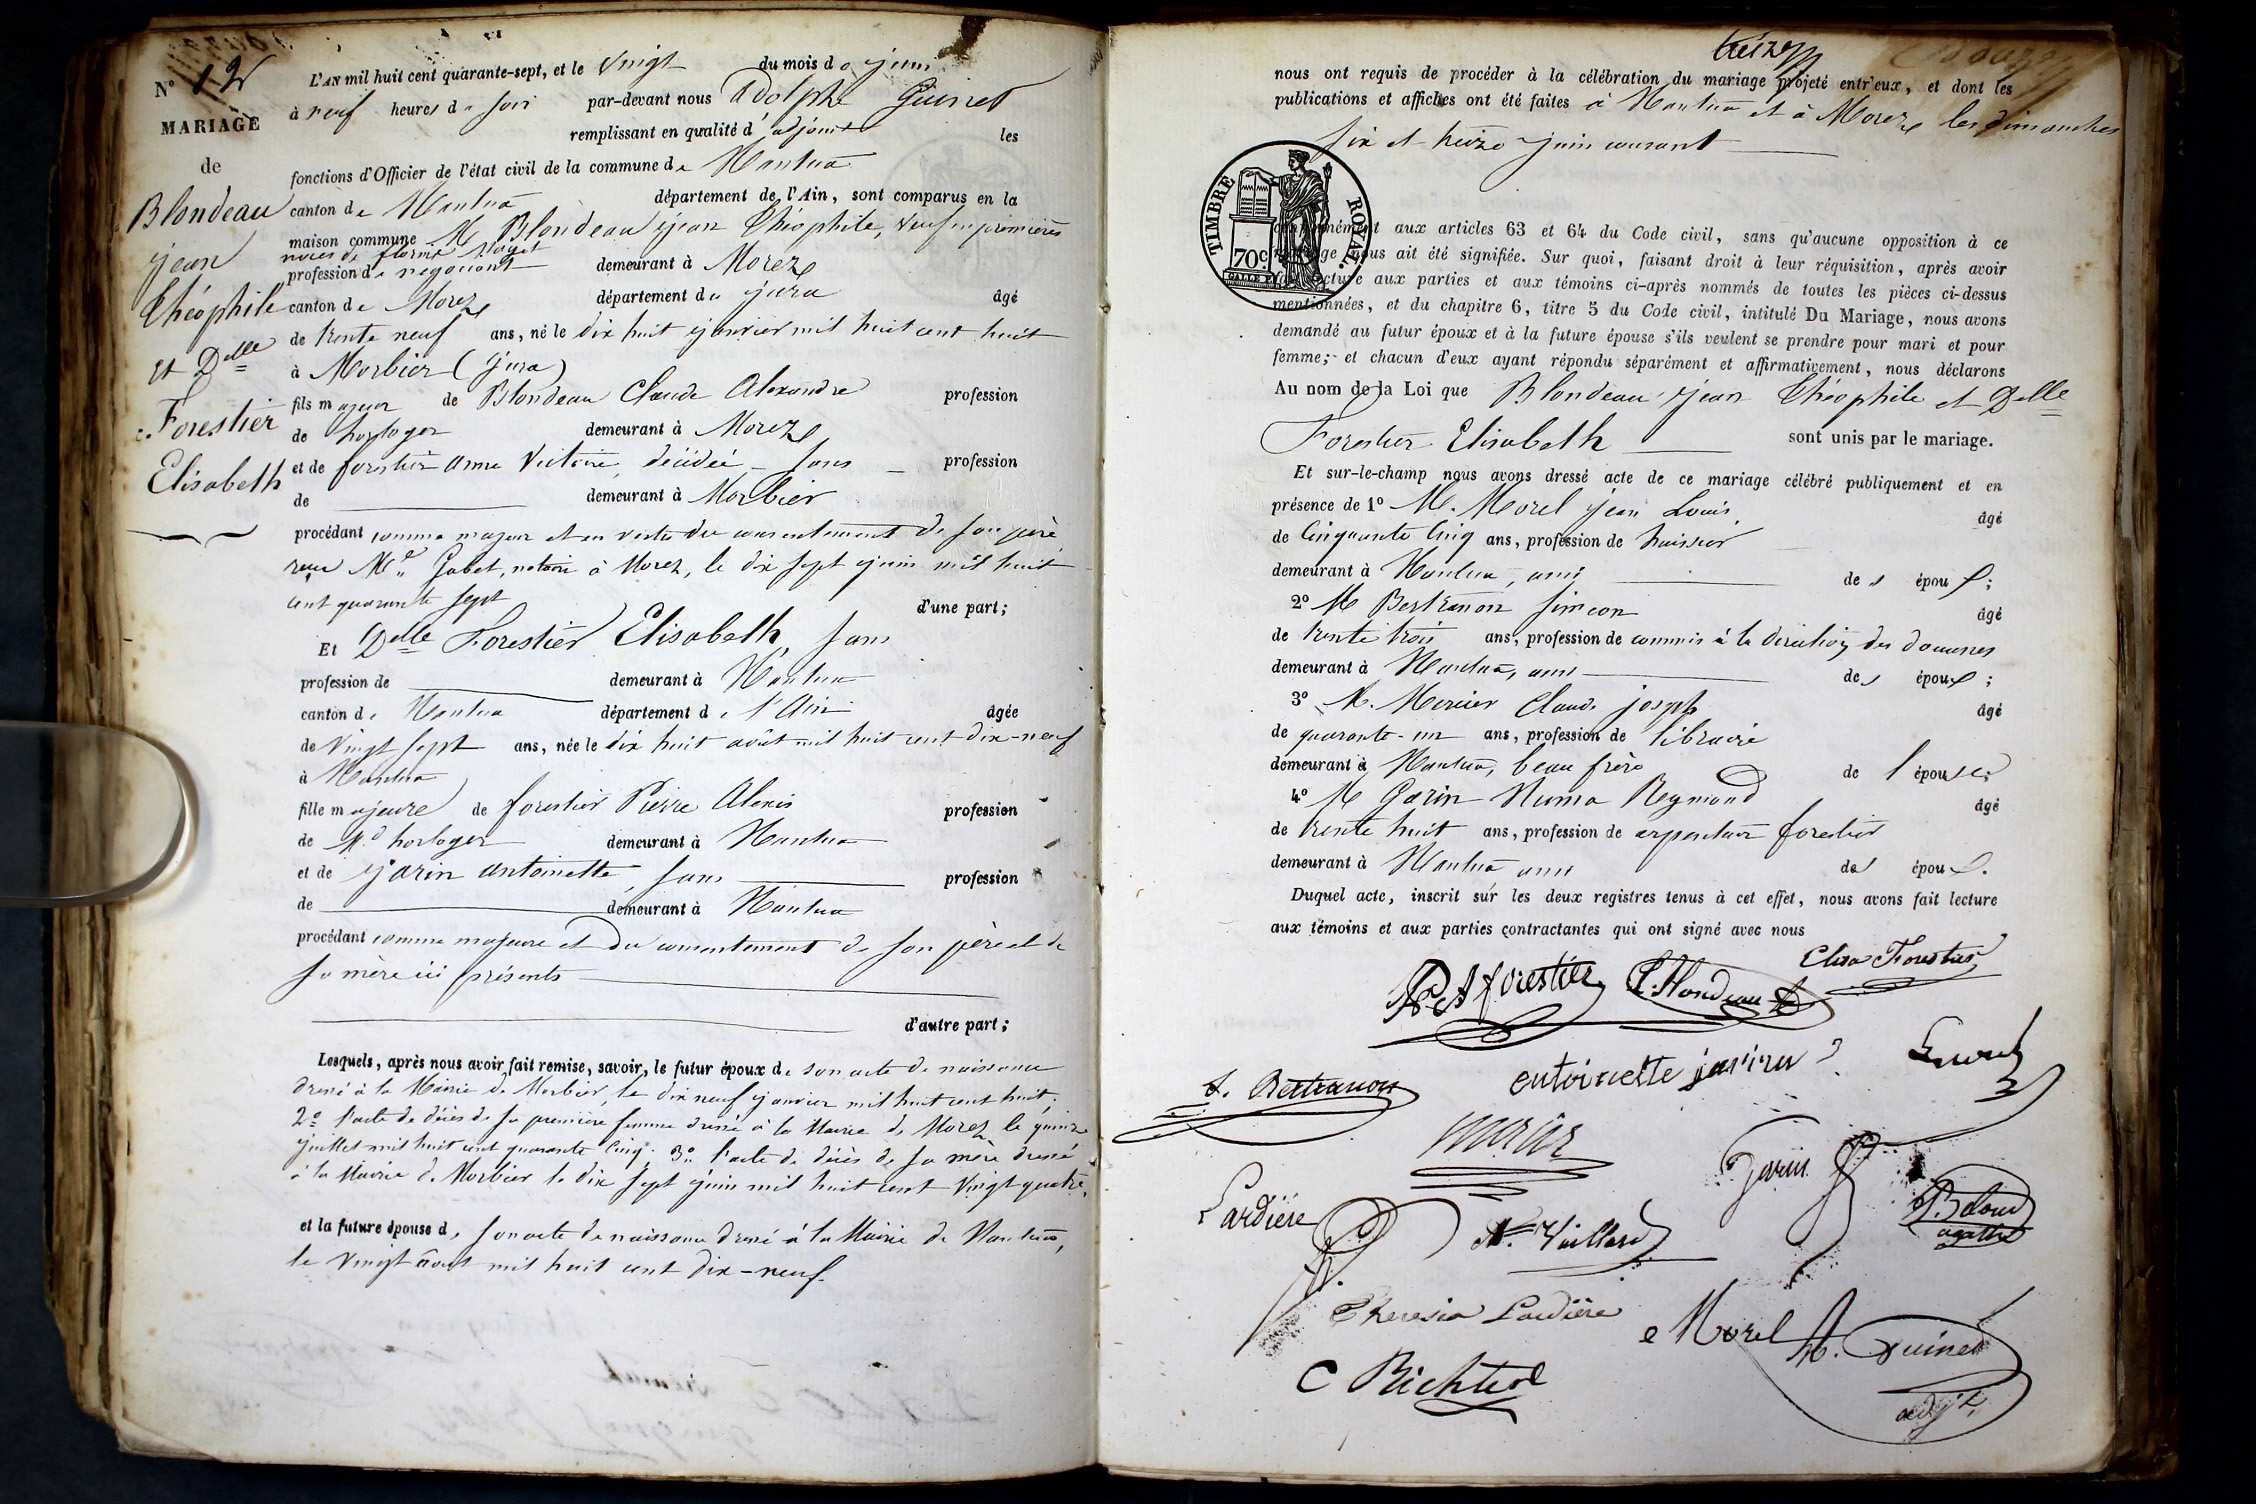 N° 12
MARIAGE
de
Blondeau
jean
Théophile
et Delle
Forestier
Elisabeth
L'AN mil huit cent quarante-sept, et le vingt du mois de juin
à neuf heures du soir par-devant nous Adolphe Guinet
remplissant en qualité d'adjoint les
fonctions d'Officier de l'état civil de la commune de Nantua
canton de Nantua département de l'Ain, sont comparus en la
maison commune M Blondeau jean Théophile, veuf en premières
noces de
profession de négociant demeurant à Morez
canton de Morez département du jura âgé
de trente neuf ans, né le dix huit janvier mil huit cent huit
à Morbier (jura)
fils majeur de Blondeau Claude Alexandre profession
de horloger demeurant à Morez
et de forestier anne Victoire, décédée - sans - profession
de demeurant à Morbier
procédant comme majeur et en vertu du consentement de son père
reçu Me Gabet, notaire à Morez, le dix sept juin mil huit
cent quarante sept d'une part;
Et Delle Forestier Elisabeth, sans
profession de demeurant à Nantua
canton de Nantua département de l'Ain âgée
de vingt sept ans, née le dix huit août mil huit cent dix-neuf
à Nantua
fille majeure de forestier Pierre Alexis profession
de Md horloger demeurant à Nantua
et de jarin antoinette, sans profession
de demeurant à Nantua
procédant comme majeure et du consentement de son père et de
sa mère ici présents
d'autre part;
Lesquels, après nous avoir fait remise, savoir, le futur époux de son acte de naissance
dressé à la Mairie de Morbier, le dix neuf janvier mil huit cent huit.
2° l'acte de décès de sa première femme dressé à la Mairie de Morez le quinze
juillet mil huit cent quarante cinq. 3° l'acte de décès de sa mère dressé
à la Mairie de Morbier le dix sept juin mil huit cent vingt quatre.
et la future épouse de son acte de naissance dressé à la Mairie de Nantua,
le vingt août mil huit cent dix-neuf.
treize
nous ont requis de procéder à la célébration du mariage projeté entr'eux, et dont les
publications et affiches ont été faites à Nantua et à Morez les dimanches
six et treize juin courant
TIMBRE ROYAL.
70c
conformément aux articles 63 et 64 du Code civil, sans qu'aucune opposition à ce
mariage nous ait été signifiée. Sur quoi, faisant droit à leur réquisition, après avoir
fait lecture aux parties et aux témoins ci-après nommés de toutes les pièces ci-dessus
mentionnées, et du chapitre 6, titre 5 du Code civil, intitulé Du Mariage, nous avons
demandé au futur époux et à la future épouse s'ils veulent se prendre pour mari et pour
femme; et chacun d'eux ayant répondu séparément et affirmativement, nous déclarons
Au nom de la Loi que Blondeau jean Théophile et Delle
Forestier Elisabeth sont unis par le mariage.
Et sur-le-champ nous avons dressé acte de ce mariage célébré publiquement et en
présence de 1° M. Morel jean Louis âgé
de Cinquante Cinq ans, profession de huissier
demeurant à Nantua, ami des époux;
2° M Bertranon Siméon âgé
de trente trois ans, profession de commis à la direction des douanes
demeurant à Nantua, ami des époux;
3° M. Mercier Claude joseph âgé
de quarante-un ans, profession de libraire
demeurant à Nantua, beau frère de l'épouse;
4° M Garin Numa Reymond âgé
de trente huit ans, profession de arpenteur forestier
demeurant à Nantua ami des époux.
Duquel acte, inscrit sur les deux registres tenus à cet effet, nous avons fait lecture
aux témoins et aux parties contractantes qui ont signé avec nous
Elisa Forestier
forestier Blondeau
S. Bertranon entoinette jarin
Garin
Lardière N. Vaillard
agathe
Theresia Lardière e Morel A. Guinet
C Richterd
adjt,